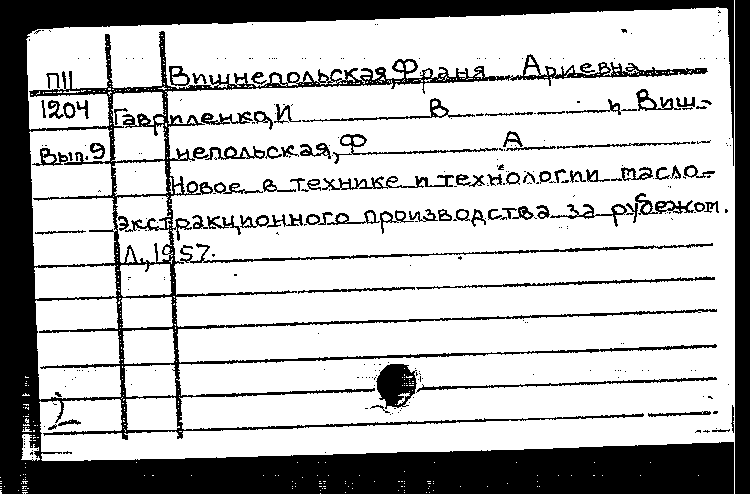 П11 Вишнепольская, Франя Ариевна
1204 Гавриленко, И В и Виш-
Вып.9 непольская, Ф А
Новое в технике и технологии масло-
экстракционного производства за рубежом.
Л., 1957.
2